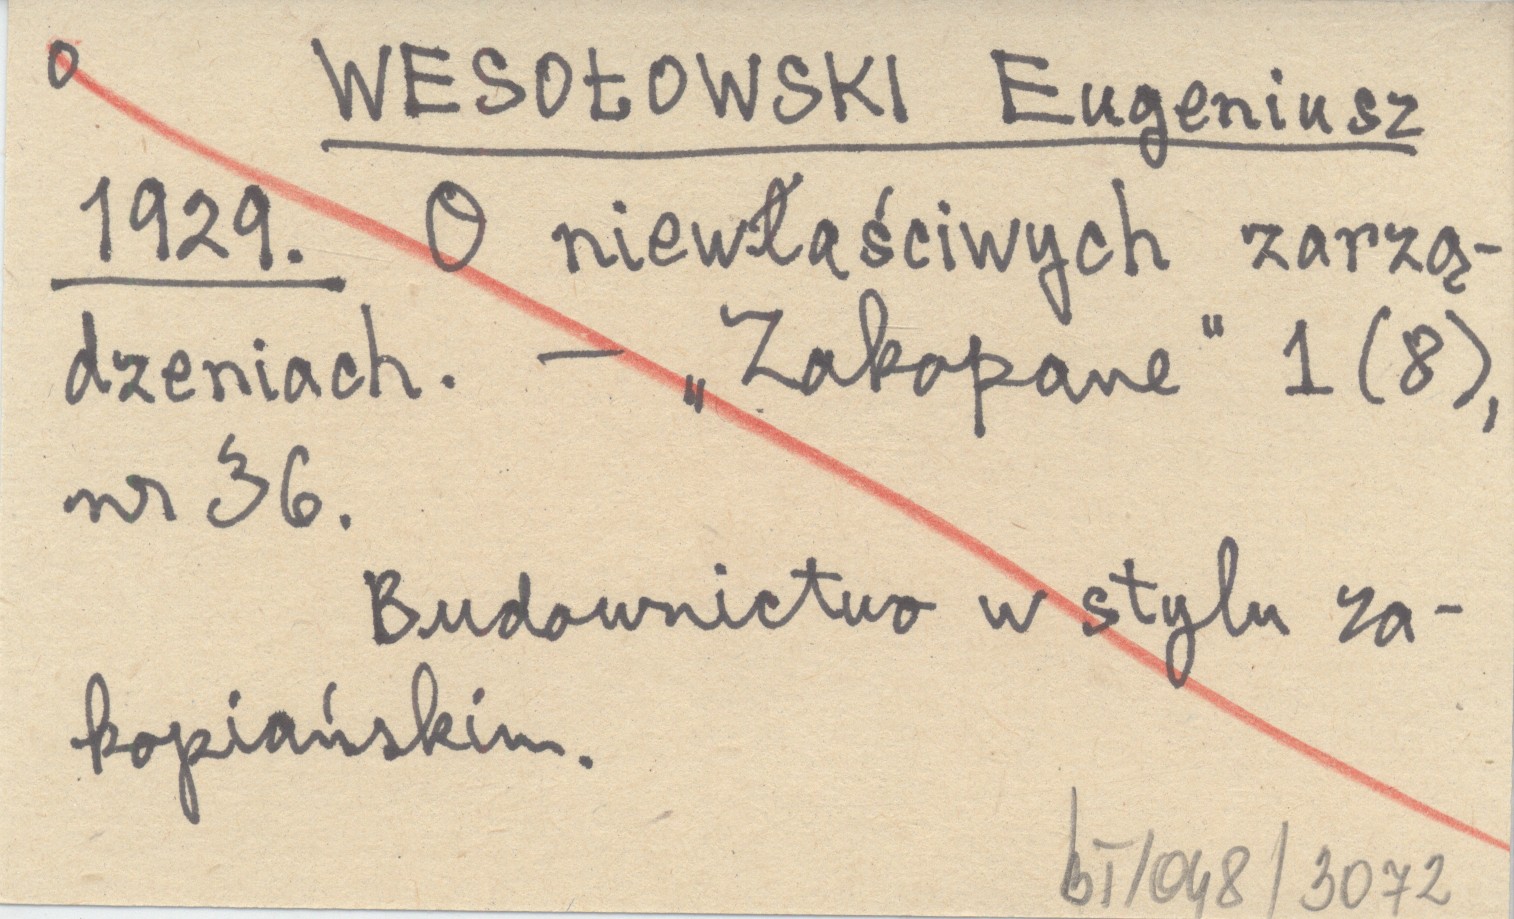 o WESOŁOWSKI Eugeniusz
1929. O niewłaściwych zarzą-
dzeniach. – „Zakopane" 1 (8),
nr 36.
Budownictwo w stylu za-
kopiańskim.
bT/048/3072